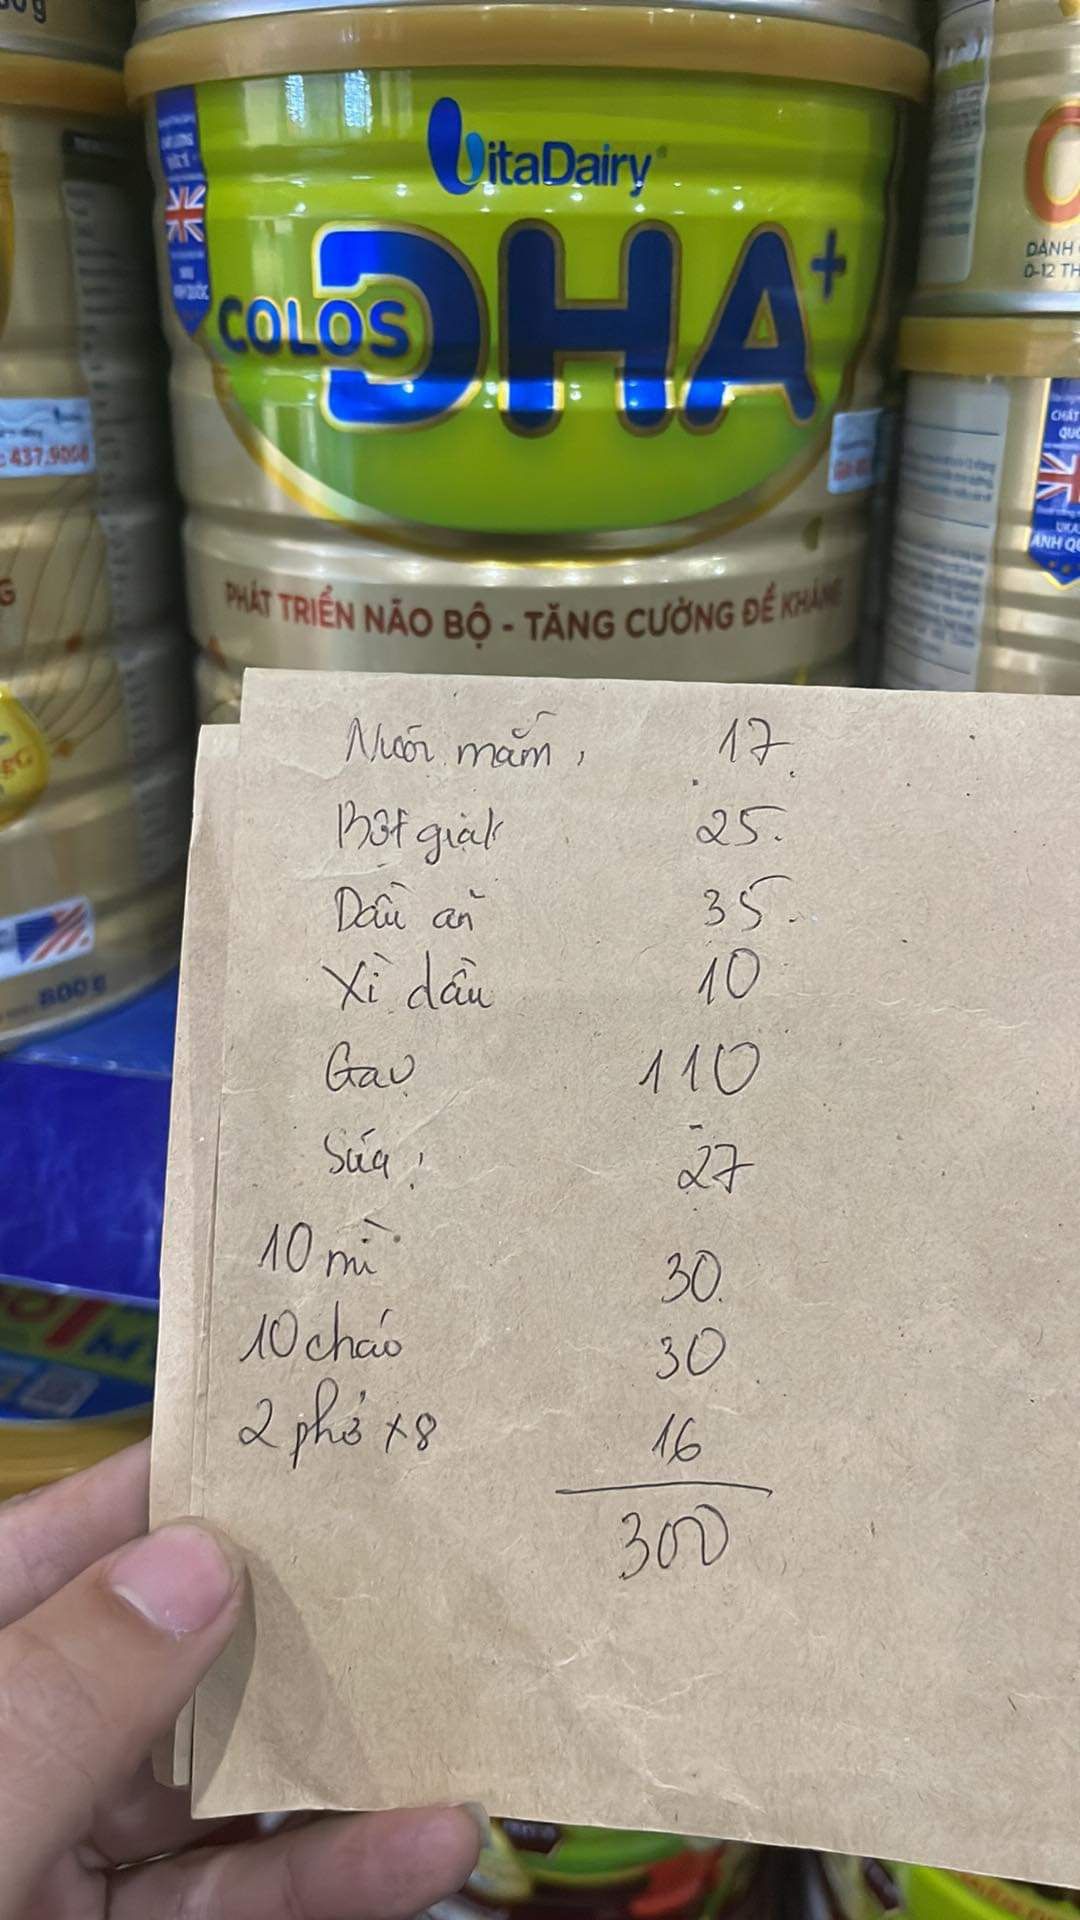 VitaDairy
COLOS DHA+
PHÁT TRIỂN NÃO BỘ - TĂNG CƯỜNG ĐỀ KHÁNG
437.900đ
800g
DÀNH
0-12 TH
CHẤT
QUỐ
ANH QU
Nước mắm, 17.
Bột giặt 25.
Dầu ăn 35.
Xì dầu 10
Gạo 110
Sữa: 27
10 mì 30.
10 cháo 30
2 phở x8 16
300